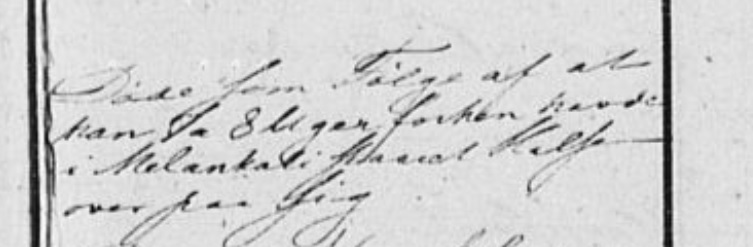 Døde som Følge af at
han ca 8 Uger forhen havde
i Melankoli skaaret Halsen
over paa sig